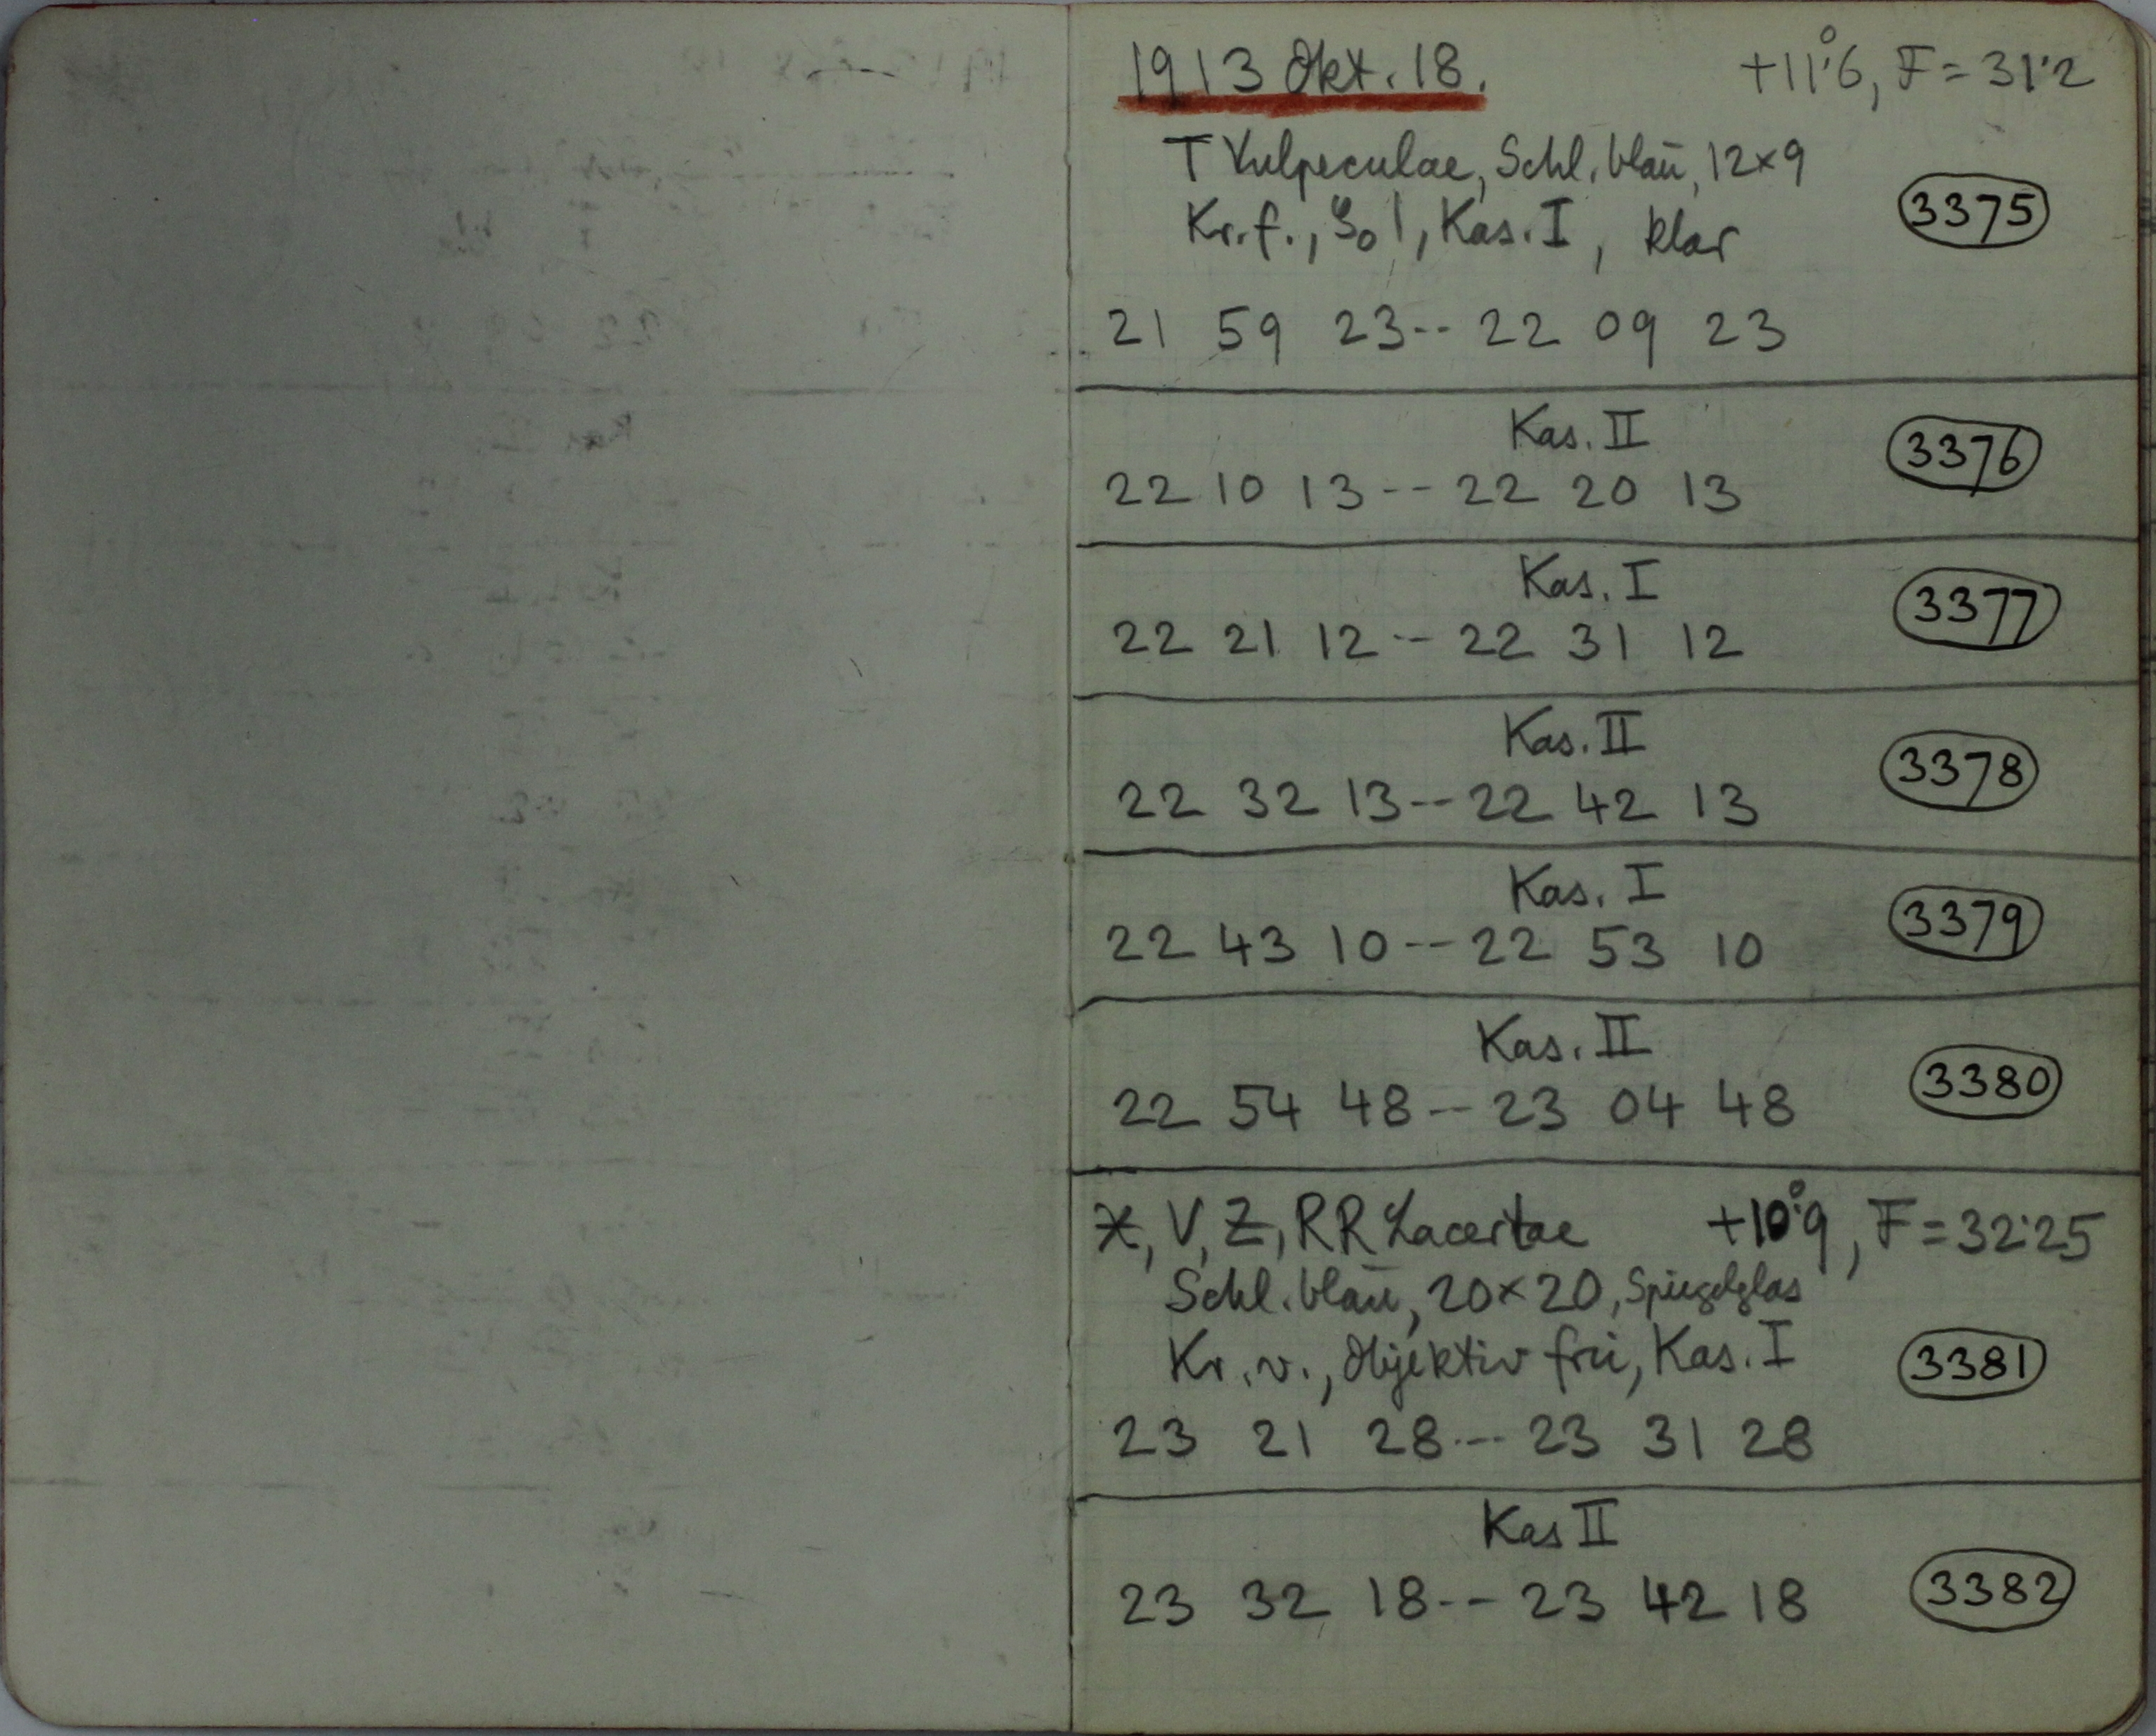 1913 Okt. 18. +11°.6, F = 31.2
T Vulpeculae, Schl. blau, 12×9
Kr. f., Kas. I, klar 3375
21 59 23 -- 22 09 23
Kas. II 3376
22 10 13 -- 22 20 13
Kas. I 3377
22 21 12 -- 22 31 12
Kas. II 3378
22 32 13 -- 22 42 13
Kas. I 3379
22 43 10 -- 22 53 10
Kas. II 3380
22 54 48 -- 23 04 48
X, V, Z, RR Lacertae +10°.9, F = 32.25
Schl. blau, 20×20, Spiegelglas
Kr. v., Objektiv frei, Kas. I 3381
23 21 28 --- 23 31 28
Kas II
23 32 18 -- 23 42 18 3382